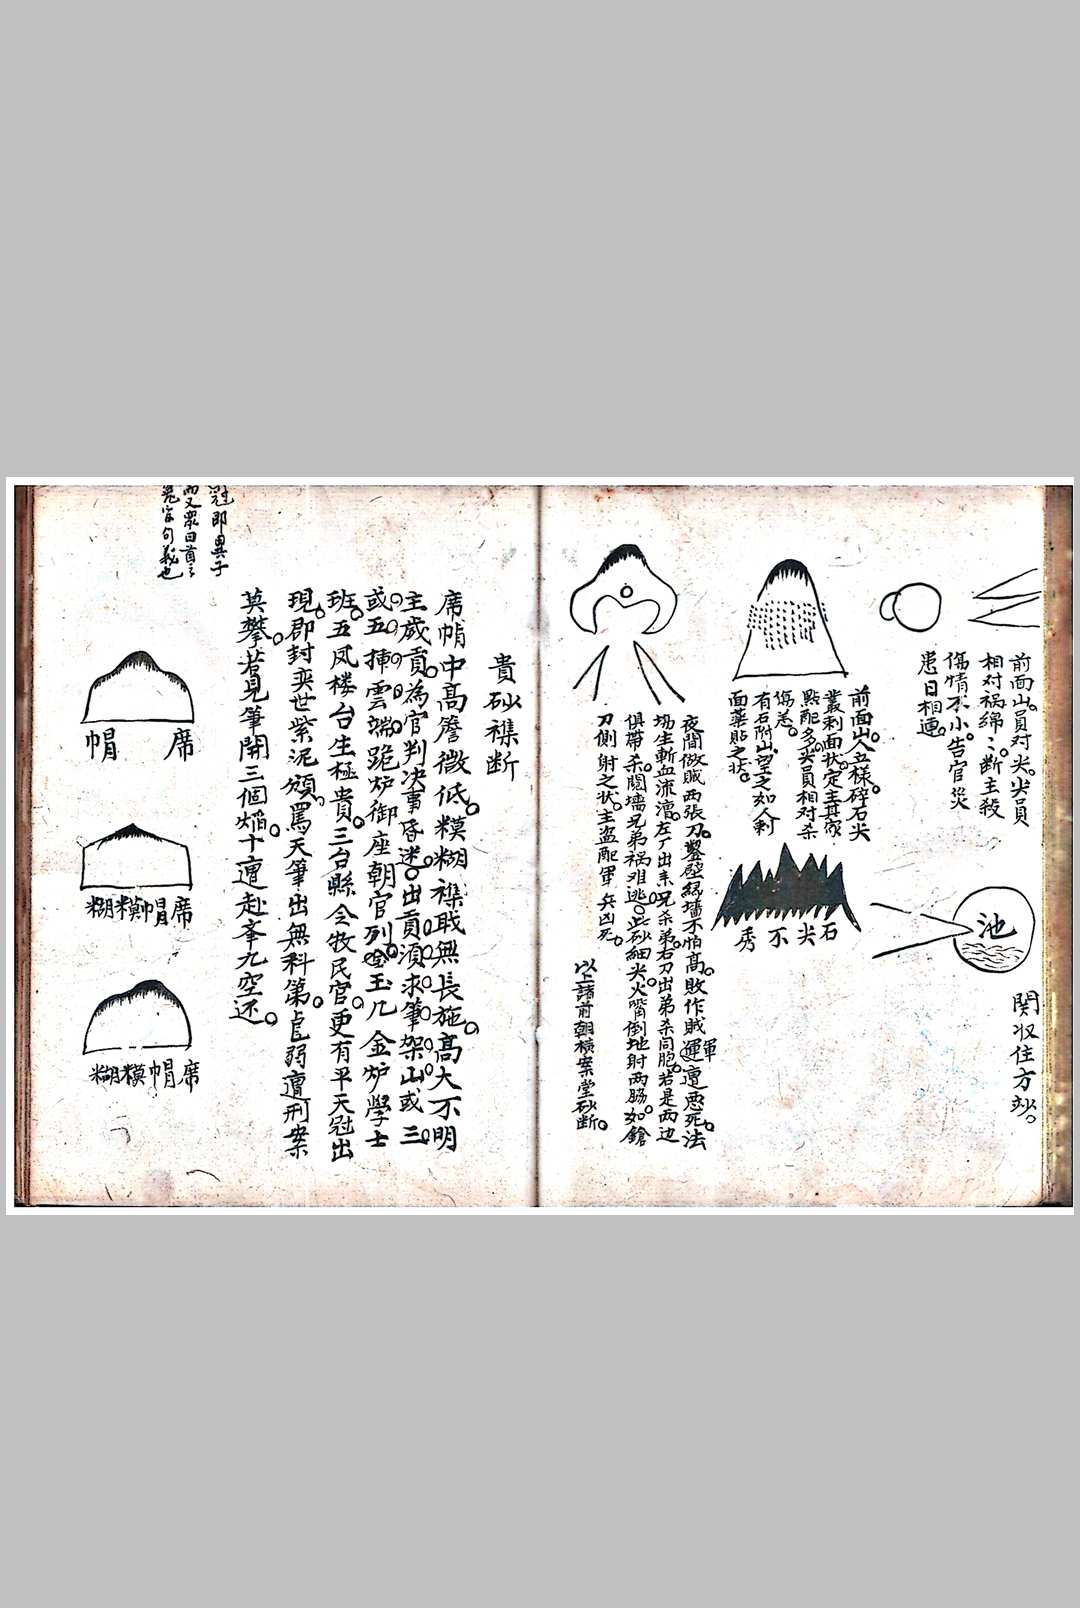 前面山員对尖。尖員
相对祸綿〻。断主殺
傷情不小。告官災
患日相連。
関収住方砂。
池
前面山人五樣。碎石尖
叢刺面状。定主其家
點配多。尖員相对杀
傷忘。
有石附山望之如人刺
面藥貼之状。
石尖不秀
夜間做賊两張刀。鑿壁緣墻不怕高。敗作賊軍運遭惡死。法
場生斬血流漕。左厂出来兄杀弟。右刀出弟杀同胞。若是两边
俱帶杀。鬩墻兄弟祸难逃。此砂細尖火嘴倒地射两脇。如鎗
刀側射之状。主盗配軍兵凶死。
以上諸前朝横案堂砂断。
貴砂襍断
席帽中高簷微低。糢糊襍职無長施。高大不明
主歲貢。為官判决事昏迷。出貢須求筆架山。或三
或五挿雲端。跪炉御座朝官列。玉几金炉學士
班。五凤楼台生極貴。三台縣令牧民官。更有平天冠出
現。郡封奕世紫泥頒。罵天筆出無科第。虛弱遭刑案
莫攀。若見筆開三個焰。十遭赴挙九空还。
冠即異子
而又眾曰首〻
冕官句義也
席帽
席帽糢糊
席帽模糊